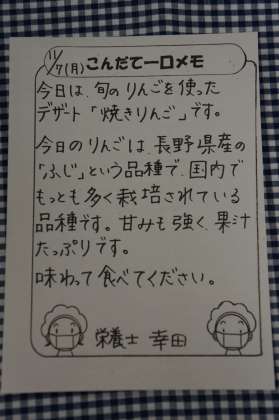 11/7(月) こんだて一口メモ
今日は、旬のりんごを使った
デザート「焼きりんご」です。
今日のりんごは、長野県産の
「ふじ」という品種で、国内で
もっとも多く栽培されている
品種です。甘みも強く、果汁
たっぷりです。
味わって食べてください。
栄養士 幸田